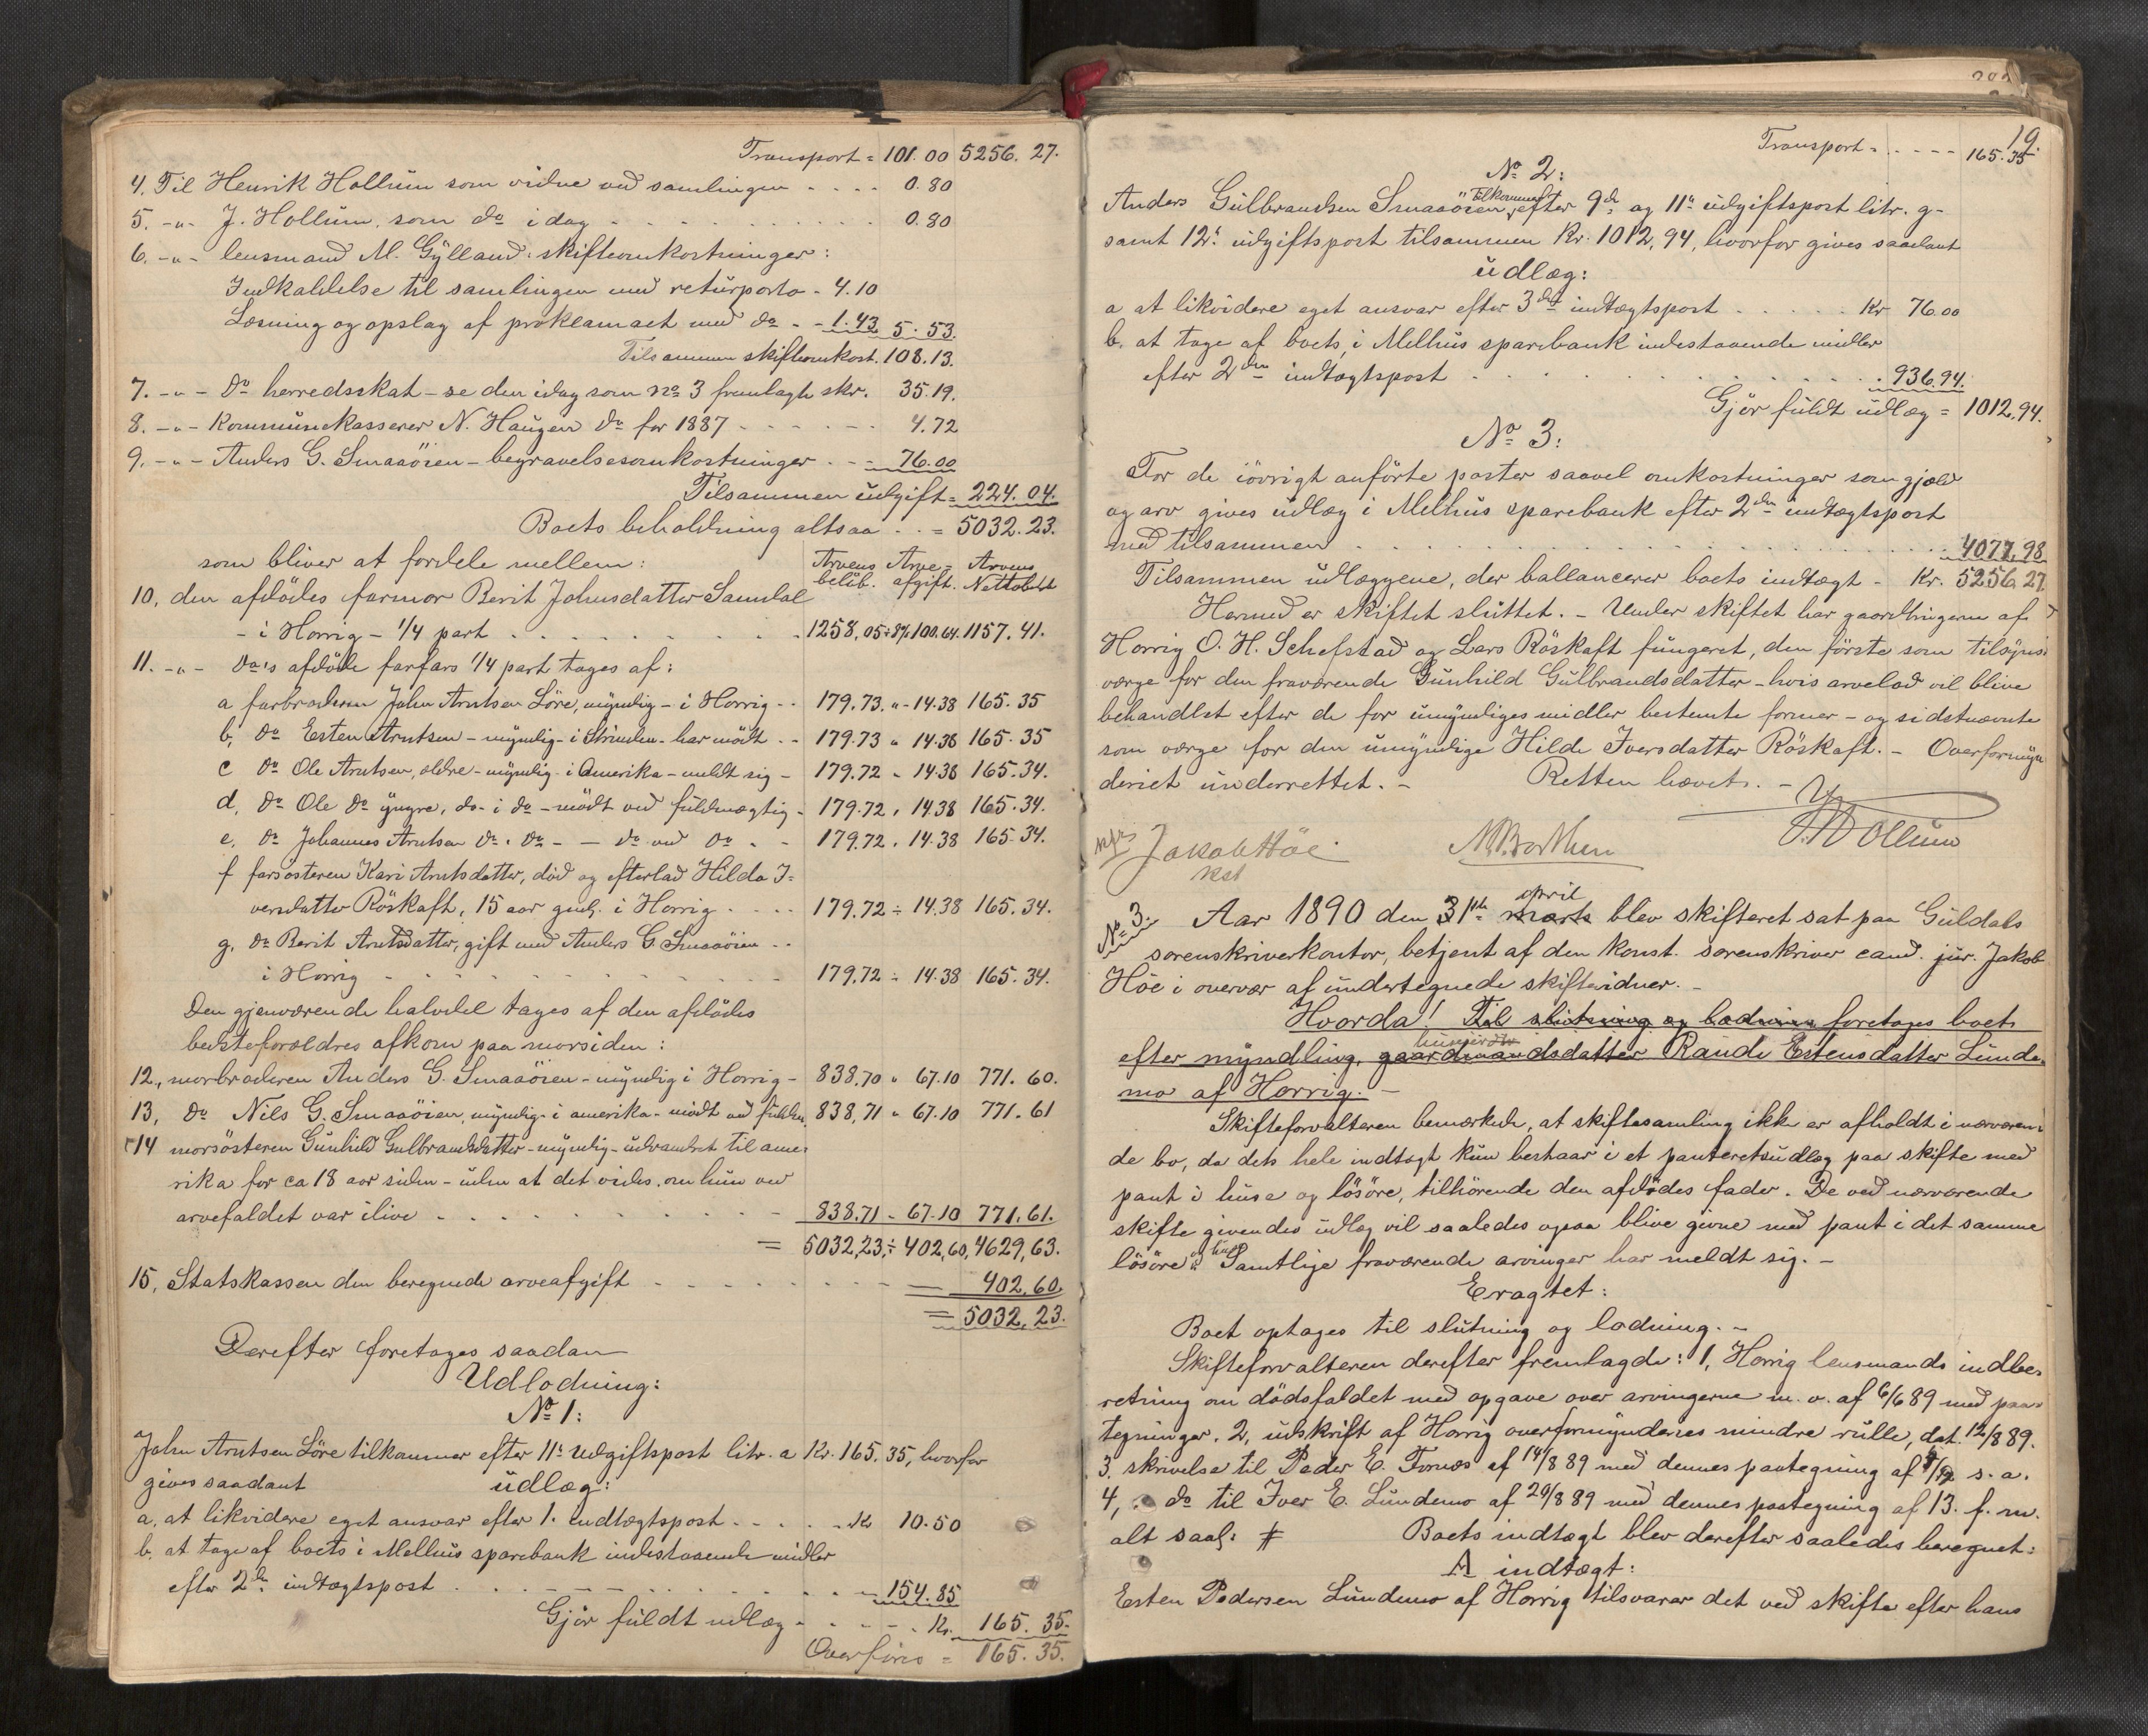 Transport = 101.00 5256. 27.
4. Til Henrik Hollum som vidne ved samlingen - - - - 0.80
5. -"- J. Hollum, som do idag - - - - 0.80
6. -"- lensmand M. Gylland: skifteomkostninger:
Indkaldelse til samlingen med returporto - 4.10
Læsning og opslag af proklamaet med do - - 1.43 5.53.
Tilsammen skifteomkost. 108.13.
7. -"- do herredsskat - se den idag som no 3 fremlagte skr. 35.19.
8. -"- Kommunekasserer N. Haugen do for 1887 - - - - 4.72
9. -"- Anders G. Smaaöien - begravelsesomkostninger - - 76.00
Tilsammen udgift = 224.04.
Boets beholdning altsaa - - = 5032.23.
som bliver at fordele mellem: Arvens belöb. Arve-afgift. Arvens Nettobelöb
10, den afdödes farmor Berit Johnsdatter Samdal
- i Horrig - 1/4 part - - - - 1258,05 ÷ 8% 100.64. 1157.41.
11. -"- do's afdöde farfars 1/4 part tages af:
a farbroderen John Arntsen Löre, myndig - i Horrig - - 179.73. " - 14.38 165.35
b, do Esten Arntsen - myndig - i Strinden - har mödt - - 179.73 " 14.38 165.35
c do Ole Arntsen, ældre - myndig - i Amerika - meldt sig - 179.72 - 14.38 165.34.
d, do Ole do yngre, do - i do - mödt ved fuldmægtig - 179.72, 14.38 165.34.
e, do Johannes Arntsen do - do - - do ved do - - 179.72, 14.38 165.34.
f farsösteren Kari Arntsdatter, död og efterlad Hilda I=
versdatter Röskaft, 15 aar gml. i Horrig - - - - 179.72 ÷ 14.38 165.34.
g, do Berit Arntsdatter, gift med Anders G. Smaaöien - -
i Horrig - - - - 179.72 ÷ 14.38 165.34.
Den gjenværende halvdel tages af den afdödes
bedsteforældres afkom paa morsiden:
12., morbroderen Anders G. Smaaöien - myndig i Horrig - 838.70 " 67.10 771.60.
13, do Nils G. Smaaöien, myndig - i amerika - mödt ved fuldm. 838,71 " 67.10 771.61
14 morsösteren Gunhild Gulbrandsdatter - myndig - udvandret til ame=
rika for ca 18 aar siden - uden at det vides, om hun ved
arvefaldet var ilive - - - - 838.71 - 67.10 771.61.
= 5032,23 ÷ 402,60, 4629,63.
15, Statskassen den beregnede arveafgift - - - - 402.60.
= 5032,23.
Derefter foretages saadan
Udlodning:
No 1:
John Arntsen Löre tilkommer efter 11te udgiftspost litr. a Kr. 165.35, hvorfor
gives saadant udlæg:
a, at likvidere eget ansvar efter 1. indtægtspost - - - - Kr 10.50
b, at tage af boets i Melhus sparebank indestaaende midler
efter 2den indtægtspost - - - - 154.85
Gjör fuldt udlæg - - - - Kr. 165.35.
Overföres = 165.35.
19.
Transport = - - - - 165.35
No 2:
Anders Gulbrandsen Smaaöien tilkommer efter 9de og 11te udgiftspost litr. g-
samt 12te udgiftspost tilsammen Kr. 1012,94, hvorfor gives saadant
udlæg:
a at likvidere eget ansvar efter 3die indtægtspost - - - - Kr 76.00
b. at tage af boets i Melhus sparebank indestaaende midler
efter 2den indtægtspost - - - - 936.94.
Gjör fuldt udlæg = 1012.94.
No 3:
For de iövrigt anförte poster saavel omkostninger som gjæld
og arv gives udlæg i Melhus sparebank efter 2den indtægtspost
med tilsammen - - - - 4077.98
Tilsammen udlæggene, der ballancerer boets indtægt - Kr. 5256,27
Hermed er skiftet sluttet. - Under skiftet har gaardbrugerne af
Horrig O. H. Schefstad og Lars Röskaft fungeret, den förste som tilsyns=
værge for den fraværende Gunhild Gulbrandsdatter - hvis arvelod vil blive
behandlet efter de for umyndiges midler bestemte former - og sidstnævnte
som værge for den umyndige Hilde Iversdatter Röskaft. - Overformyn
deriet underrettet. - Retten hævet. -
Jakob Höe
kst
J. Hollum
No 3. Aar 1890 den 31te marts april blev skifteret sat paa Guldals
sorenskriverkontor, betjent af den konst. sorenskriver cand. jur. Jakob
Höe i overvær af undertegnede skiftevidner. -
Hvorda! Til slutning og lodning foretages boet
efter myndling, gaardmandsdatter Randi Estensdatter Lunde=
mo af Horrig. -
Skifteforvalteren bemærkede, at skiftesamling ikke er afholdt i nærværen=
de bo, da dets hele indtægt kun bestaar i et panteretsudlæg paa skifte med
pant i huse og lösöre, tilhörende den afdödes fader. De ved nærværende
skifte givendes udlæg vil saaledes ogsaa blive givne med pant i det samme
lösöre og huse. Samtlige fraværende arvinger har meldt sig. -
Eragtet:
Boet optages til slutning og lodning. -
Skifteforvalteren derefter fremlagde: 1, Horrig lensmands indbe=
retning om dödsfaldet med opgave over arvingerne m. v. af 6/6 89 med paa=
tegninger. 2, udskrift af Horrig overformynderies mindre rulle, dat. 12/8 89.
3. skrivelse til Peder E. Fornes af 14/8 89 med dennes paategning af 9/12 s. a.
4, do til Iver E. Lundemo af 20/8 89 med dennes paategning af 13. f. m.
alt saal: # Boets indtægt blev derefter saaledes beregnet:
A indtægt:
Esten Pedersen Lundemo af Horrig tilsvarer det ved skifte efter hans